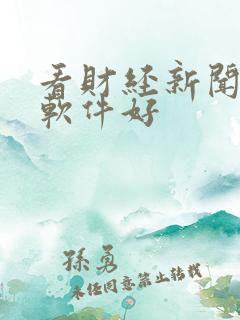 看財經新聞
軟件好
孫勇
未經同意禁止轉載